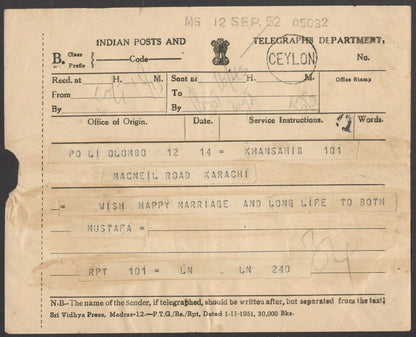 MS 12 SEP. 52 05032
INDIAN POSTS AND TELEGRAPHS DEPARTMENT.
B. { Class Prefix } Code CEYLON No.
Recd. at H. M. Sent at H. M. Office Stamp
From To
By By
Office of Origin. Date. Service Instructions. Words.
PO LI OLOMBO 12 14 = KHANSAHIB 101
MACNEIL ROAD KARACHI
= WISH HAPPY MARRIAGE AND LONG LIFE TO BOTH
MUSTAFA =
RPT 101 = LN LN 240
N.B-The name of the sender, if telegraphed, should be written after, but separated from the text;
Sri Vidhya Press, Madras-12.—P.T.G./Rs./Rpt. Dated 1-11-1951, 30,000 Bks.